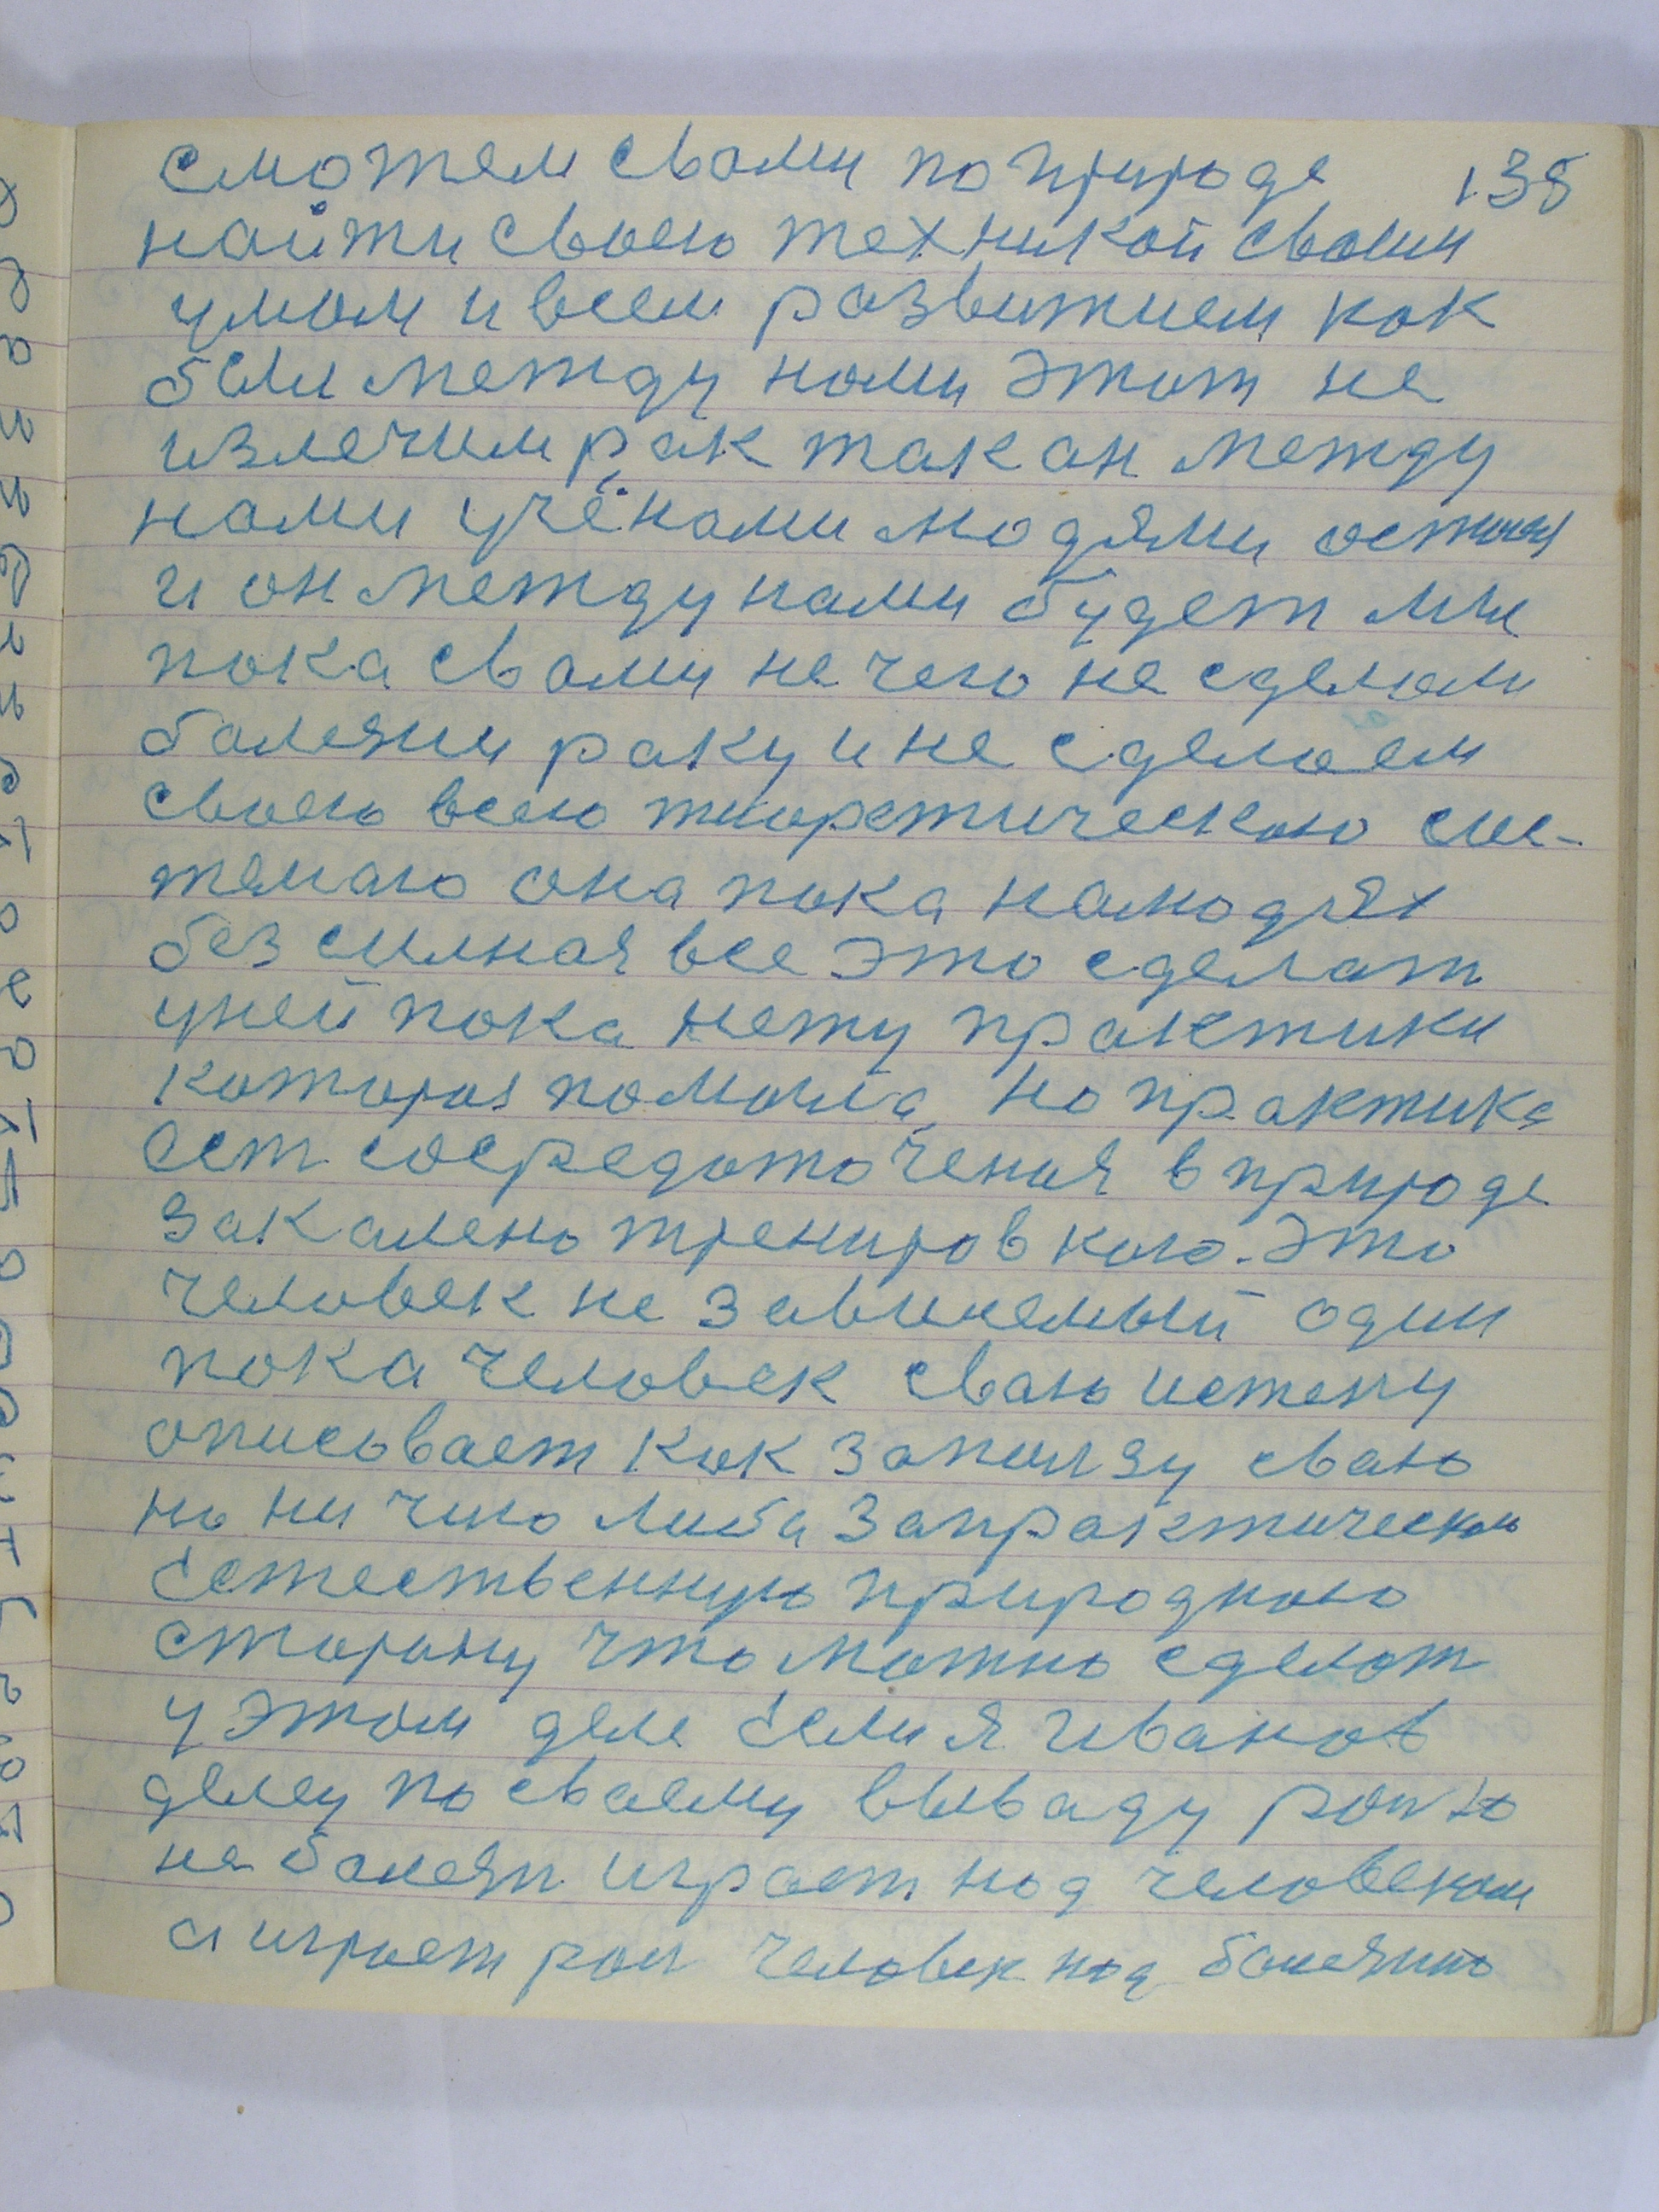 сможем свами поприроде 138
найти своею техникой своим
умом и всем развитием как
был между нами этот не
излечим рак так он между
нами учёнами людями остался
и он между нами будет мы
пока свами не чего не сделали
болезни раку и не сделаем
своею всею тиоретическою сис-
темаю она пока налюдях
без силная все это сделат
уней пока нету практики
которая помогла но практика
ест сосредоточеная вприроде
закалено тренировкою. Это
человек не зависемый один
пока человек сваю истену
описовает как заползу сваю
но ни чшо либа запрактическою
естественную природною
сторону что можно сделат
у этом деле если я Иванов
делу по сваему вываду
не болезн играет над человеком
а играет рол человек над болезню